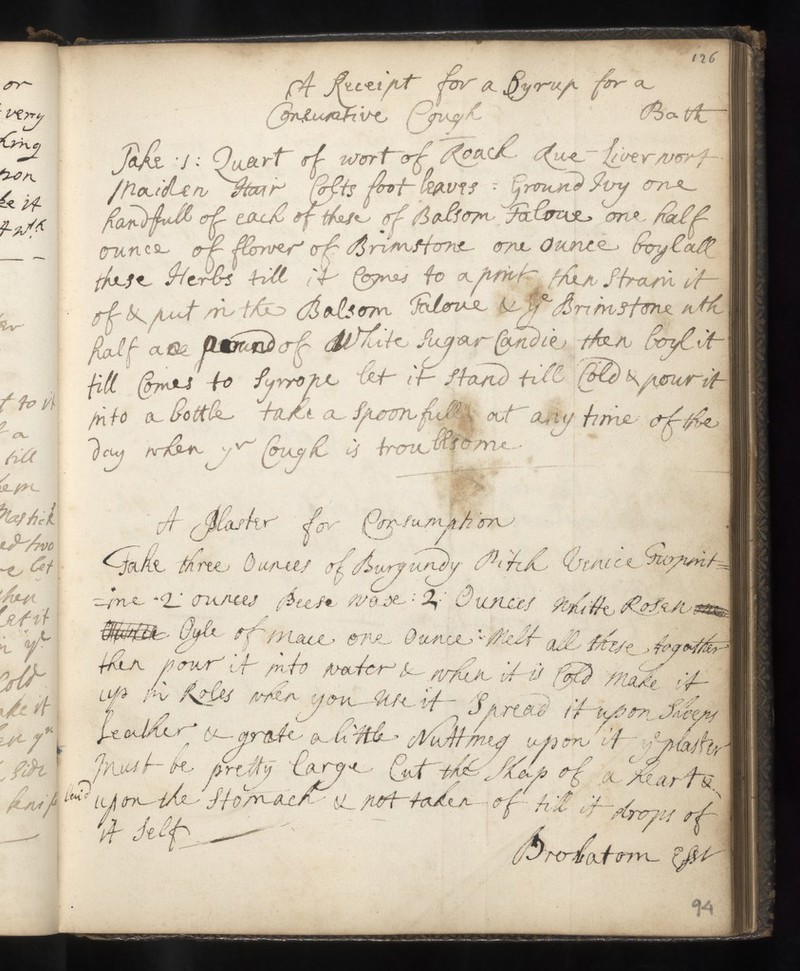 or
very
king
tion
ke it
126
A Receipt for a Syrup for a
Consumtive Cough Bath
Take ·1: Quart of wort of Roach Rue Liverwort
Maiden Hair Colts foot leaves : Ground Ivy one
handfull of each of these of Balsom Taloue one half
ounce of flower of Brimstone one ounce boyl all
these Herbs till it Comes to a pint then Strain it
of & put in the Balsom Taloue & ye Brimstone wth
half a pound of White Sugar Candie then boyl it
till Comes to Syrrope let it stand till Cold & pour it
into a bottle take a spoonfull at any time of the
day when yr Cough is troublsome
A Plaster for Consumption
Take three Ounces of Burgundy Pitch Venice Turpint=
=ine ·2· ounces Beese waxe : 2: Ounces Whitte Rosen
Oyle of mace one Ounce : Melt all these togather
then pour it into water & when it is Cold make it
up in Roles when you use it Spread it upon Sheeps
Leather & grate a little Nuttmeg upon it ye plaster
must be pretty large Cut the Shap of a heart &
laid upon the Stomach & not taken of till it drops of
it Self
Probatom Est
94
till
Mastick
two
let
then
let it
Cold
ake it
side